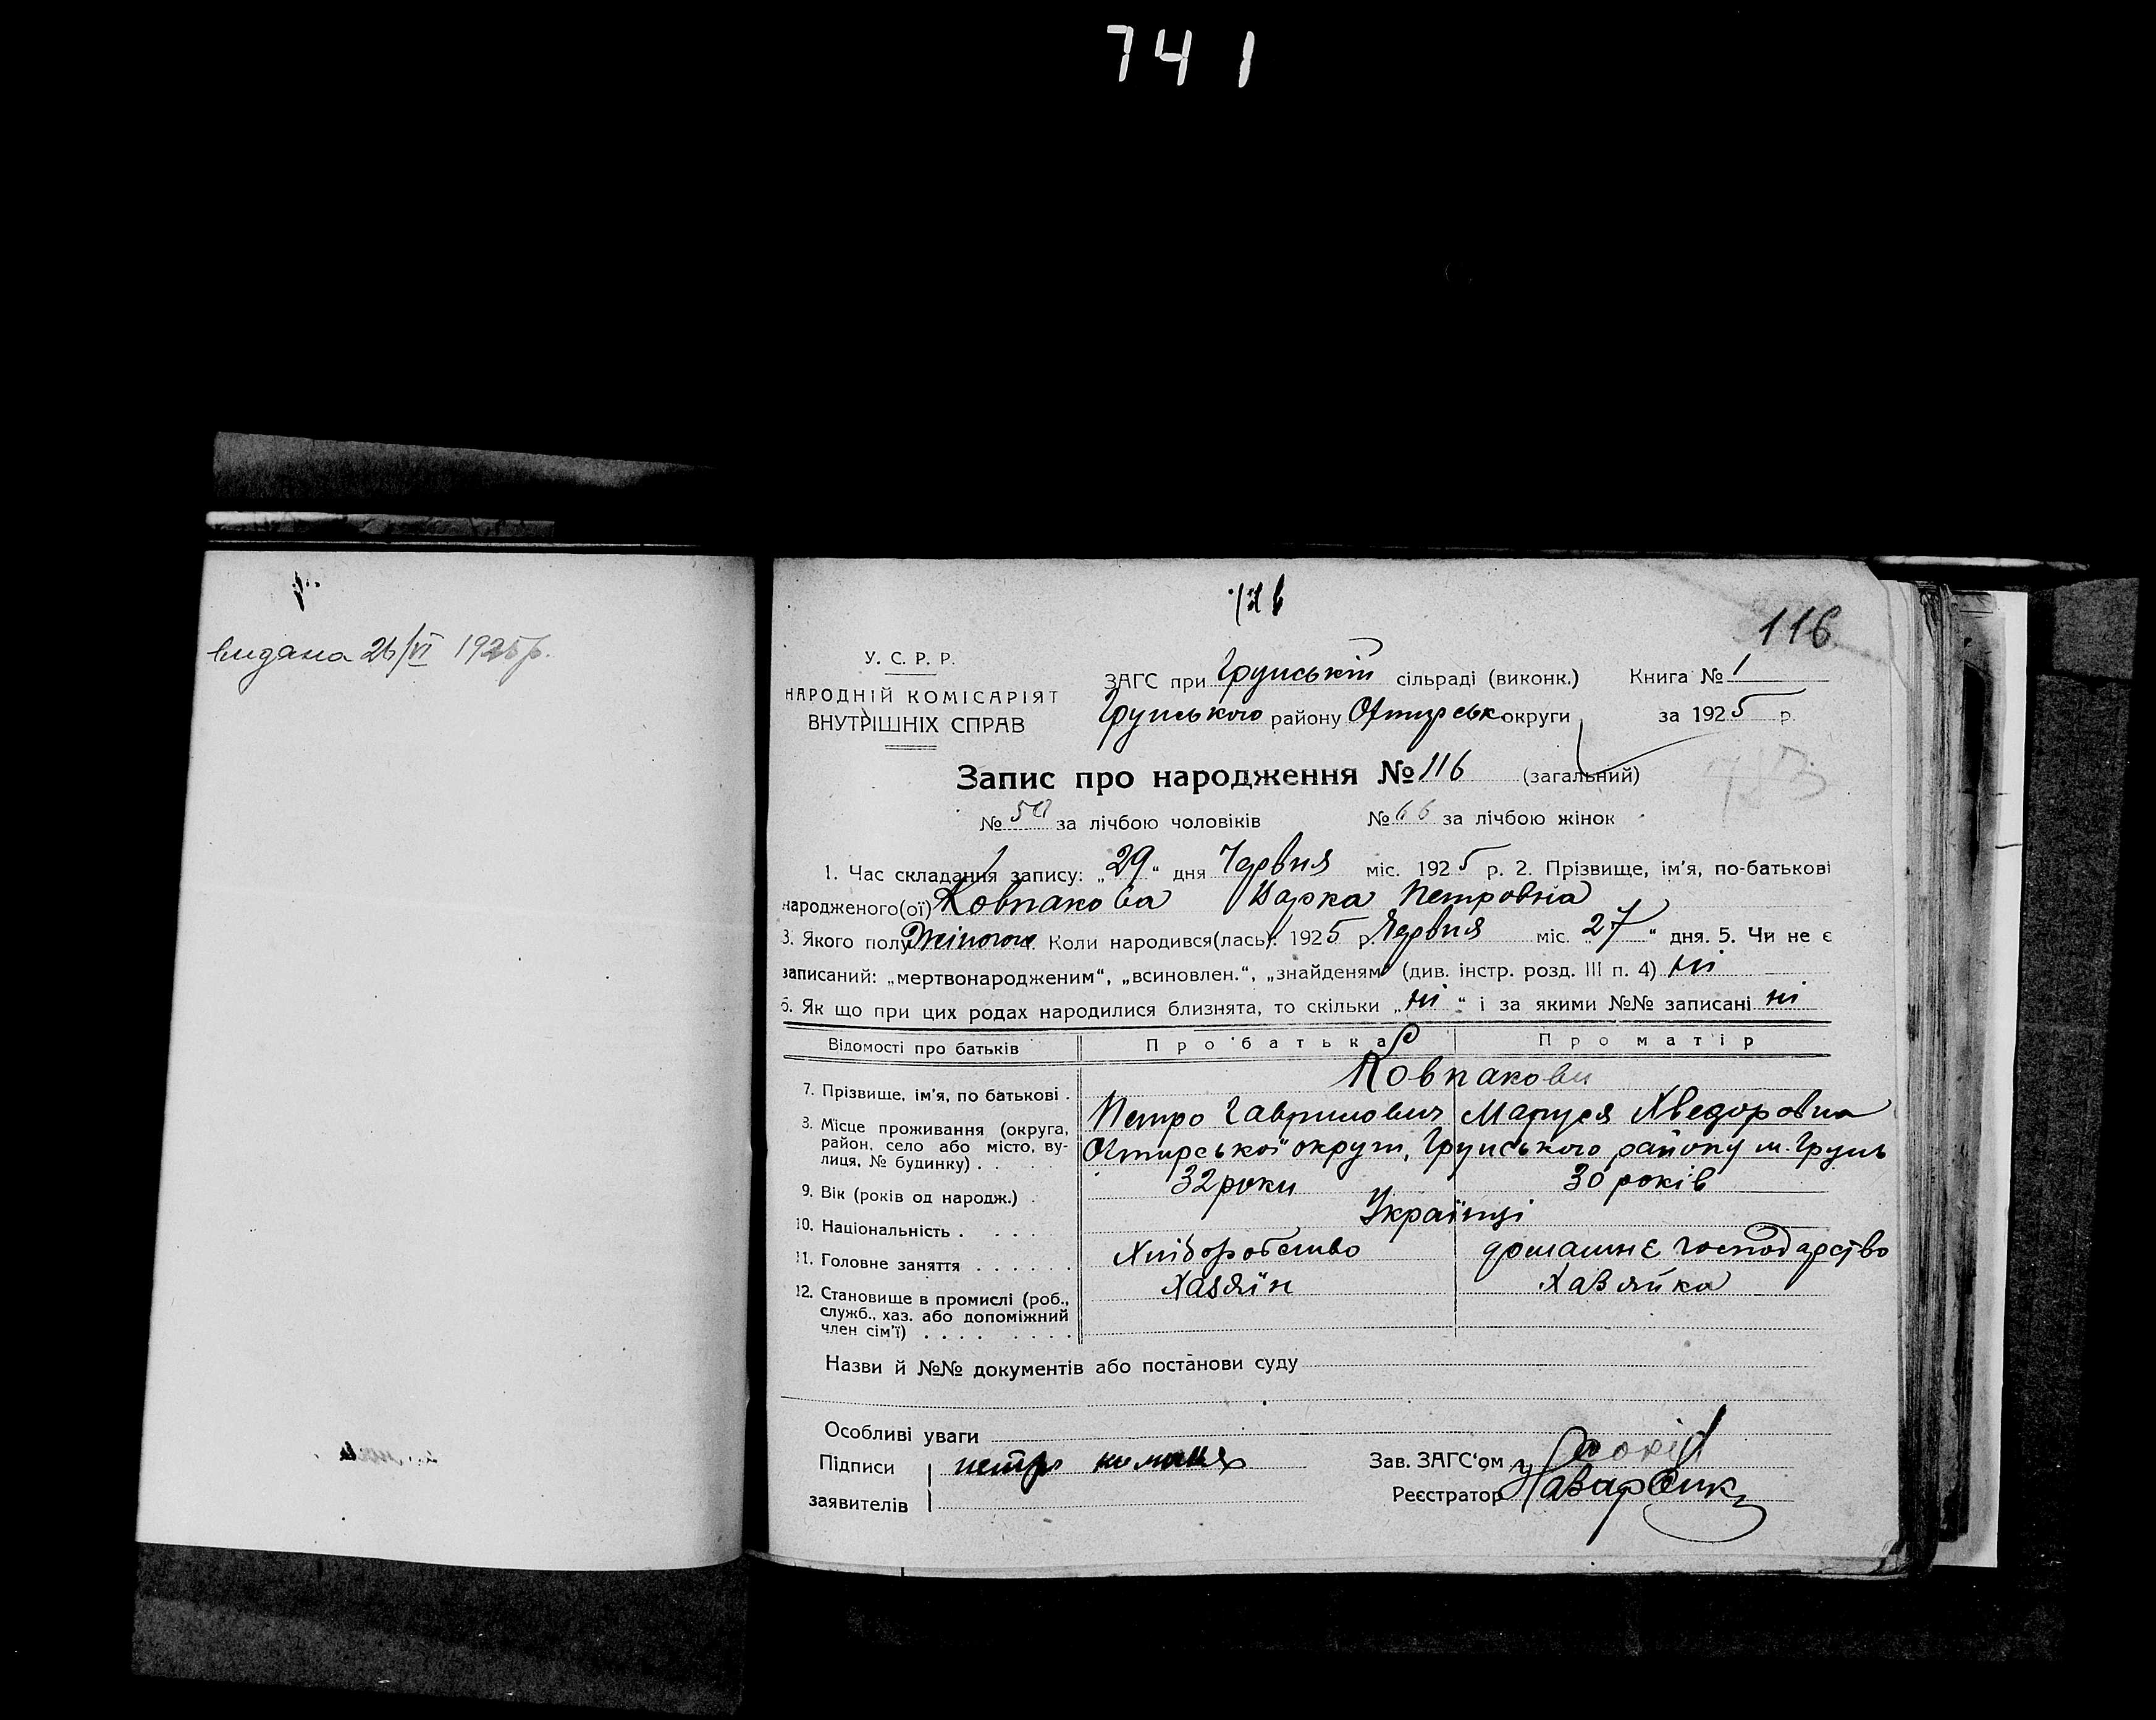 741
видана 26/VI 1925 р.
116
У. С. Р. Р.
НАРОДНІЙ КОМІСАРІЯТ
ВНУТРІШНІХ СПРАВ
ЗАГС при Грунській сільраді (виконк.) Книга № 1
Грунського району Охтирськ округи за 1925 р.
Запис про народження № 116 (загальний)
№ 50 за лічбою чоловіків № 66 за лічбою жінок
1. Час складання запису: „29“ дня Червня міс. 1925 р. 2. Прізвище, ім'я, по-батькові
народженого(ої) Ковпакова Варка Петровна
3. Якого полу Жіночого Коли народився(лась): 1925 р. Червня міс. „27“ дня. 5. Чи не є
записаний: „мертвонародженим“, „всиновлен.“, „знайденям“ (див. інстр. розд. III п. 4) ні
6. Як що при цих родах народилися близнята, то скільки „ні“ і за якими №№ записані ні
Відомості про батьків Про батька Про матір
Ковпакови
7. Прізвище, ім'я, по батькові . Петро Гаврилович Маруся Хведоровна
8. Місце проживання (округа, район, село або місто, вулиця, № будинку) . . Охтирської округи, Грунського району м. Грунь
9. Вік (років од народж.) . 32 роки 30 років
10. Національність . . . . Українці
11. Головне заняття . . . . . . Хліборобство домашнє господарство
12. Становище в промислі (роб., служб., хаз. або допоміжний член сім'ї) . . . . . . . . Хазяїн Хазяйка
Назви й №№ документів або постанови суду
Особливі уваги
Підписи петро
заявителів
Зав. ЗАГС'ом
Реєстратор